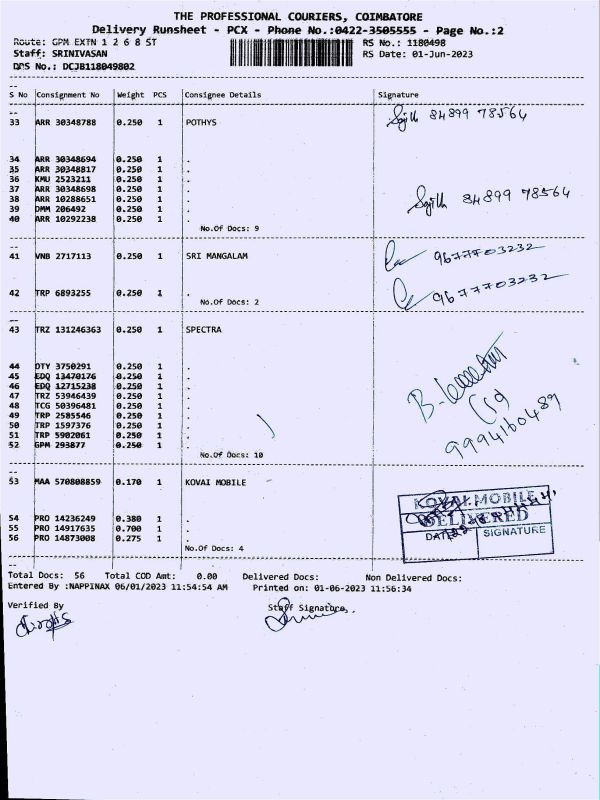 THE PROFESSIONAL COURIERS, COIMBATORE
Delivery Runsheet - PCX - Phone No.:0422-3505555 - Page No.:2
Route: GPM EXTN 1 2 6 8 ST RS No.: 1180498
Staff: SRINIVASAN RS Date: 01-Jun-2023
DRS No.: DCJB118049802
S No Consignment No Weight PCS Consignee Details Signature
33 ARR 30348788 0.250 1 POTHYS 84899 78564
34 ARR 30348694 0.250 1 .
35 ARR 30348817 0.250 1 .
36 KMU 2523211 0.250 1 .
37 ARR 30348698 0.250 1 .
38 ARR 10288651 0.250 1 . 84899 78564
39 DMM 206492 0.250 1 .
40 ARR 10292238 0.250 1 .
No.Of Docs: 9
41 VNB 2717113 0.250 1 SRI MANGALAM 9677703232
42 TRP 6893255 0.250 1 . 9677703232
No.Of Docs: 2
43 TRZ 131246363 0.250 1 SPECTRA
44 DTY 3750291 0.250 1 .
45 EDQ 13470176 0.250 1 .
46 EDQ 12715238 0.250 1 .
47 TRZ 53946439 0.250 1 .
48 TCG 50396481 0.250 1 .
49 TRP 2585546 0.250 1 .
50 TRP 1597376 0.250 1 .
51 TRP 5902061 0.250 1 .
52 GPM 293877 0.250 1 .
No.Of Docs: 10
9994160489
53 MAA 570808859 0.170 1 KOVAI MOBILE
KOVAI MOBILE
DELIVERED
DATE SIGNATURE
54 PRO 14236249 0.380 1 .
55 PRO 14917635 0.700 1 .
56 PRO 14873008 0.275 1 .
No.Of Docs: 4
Total Docs: 56 Total COD Amt: 0.00 Delivered Docs: Non Delivered Docs:
Entered By :NAPPINAX 06/01/2023 11:54:54 AM Printed on: 01-06-2023 11:56:34
Verified By Staff Signature